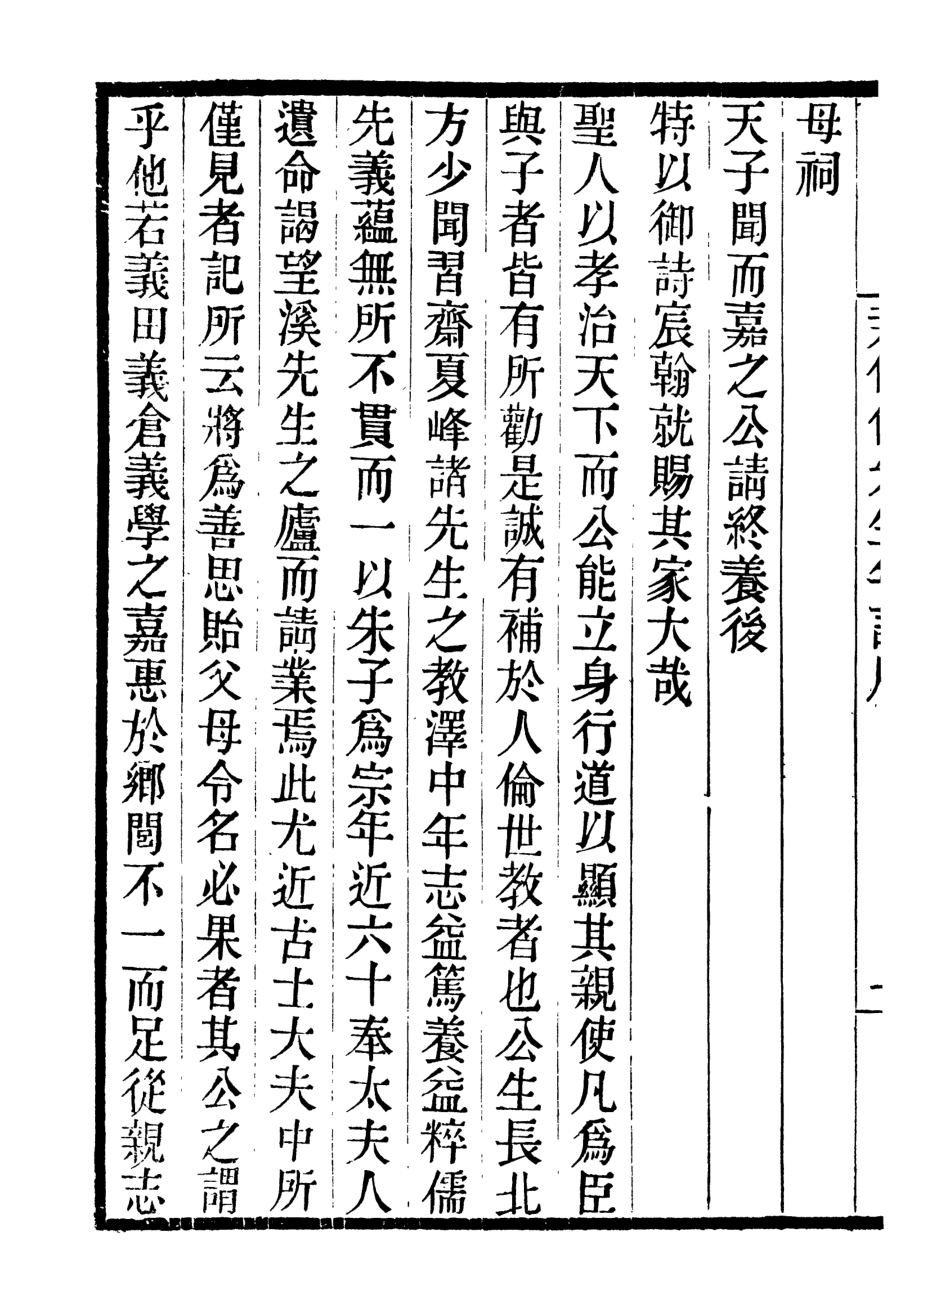 母祠
天子聞而嘉之公請終養後
特以御詩宸翰就賜其家大哉
聖人以孝治天下而公能立身行道以顯其親使凡爲臣
與子者皆有所勸是誠有補於人倫世教者也公生長北
方少聞習齋夏峰諸先生之教澤中年志益篤養益粹儒
先義蘊無所不貫而一以朱子爲宗年近六十奉太夫人
遺命謁望溪先生之廬而請業焉此尤近古士大夫中所
僅見者記所云將爲善思貽父母令名必果者其公之謂
乎他若義田義倉義學之嘉惠於鄉閭不一而足從親志